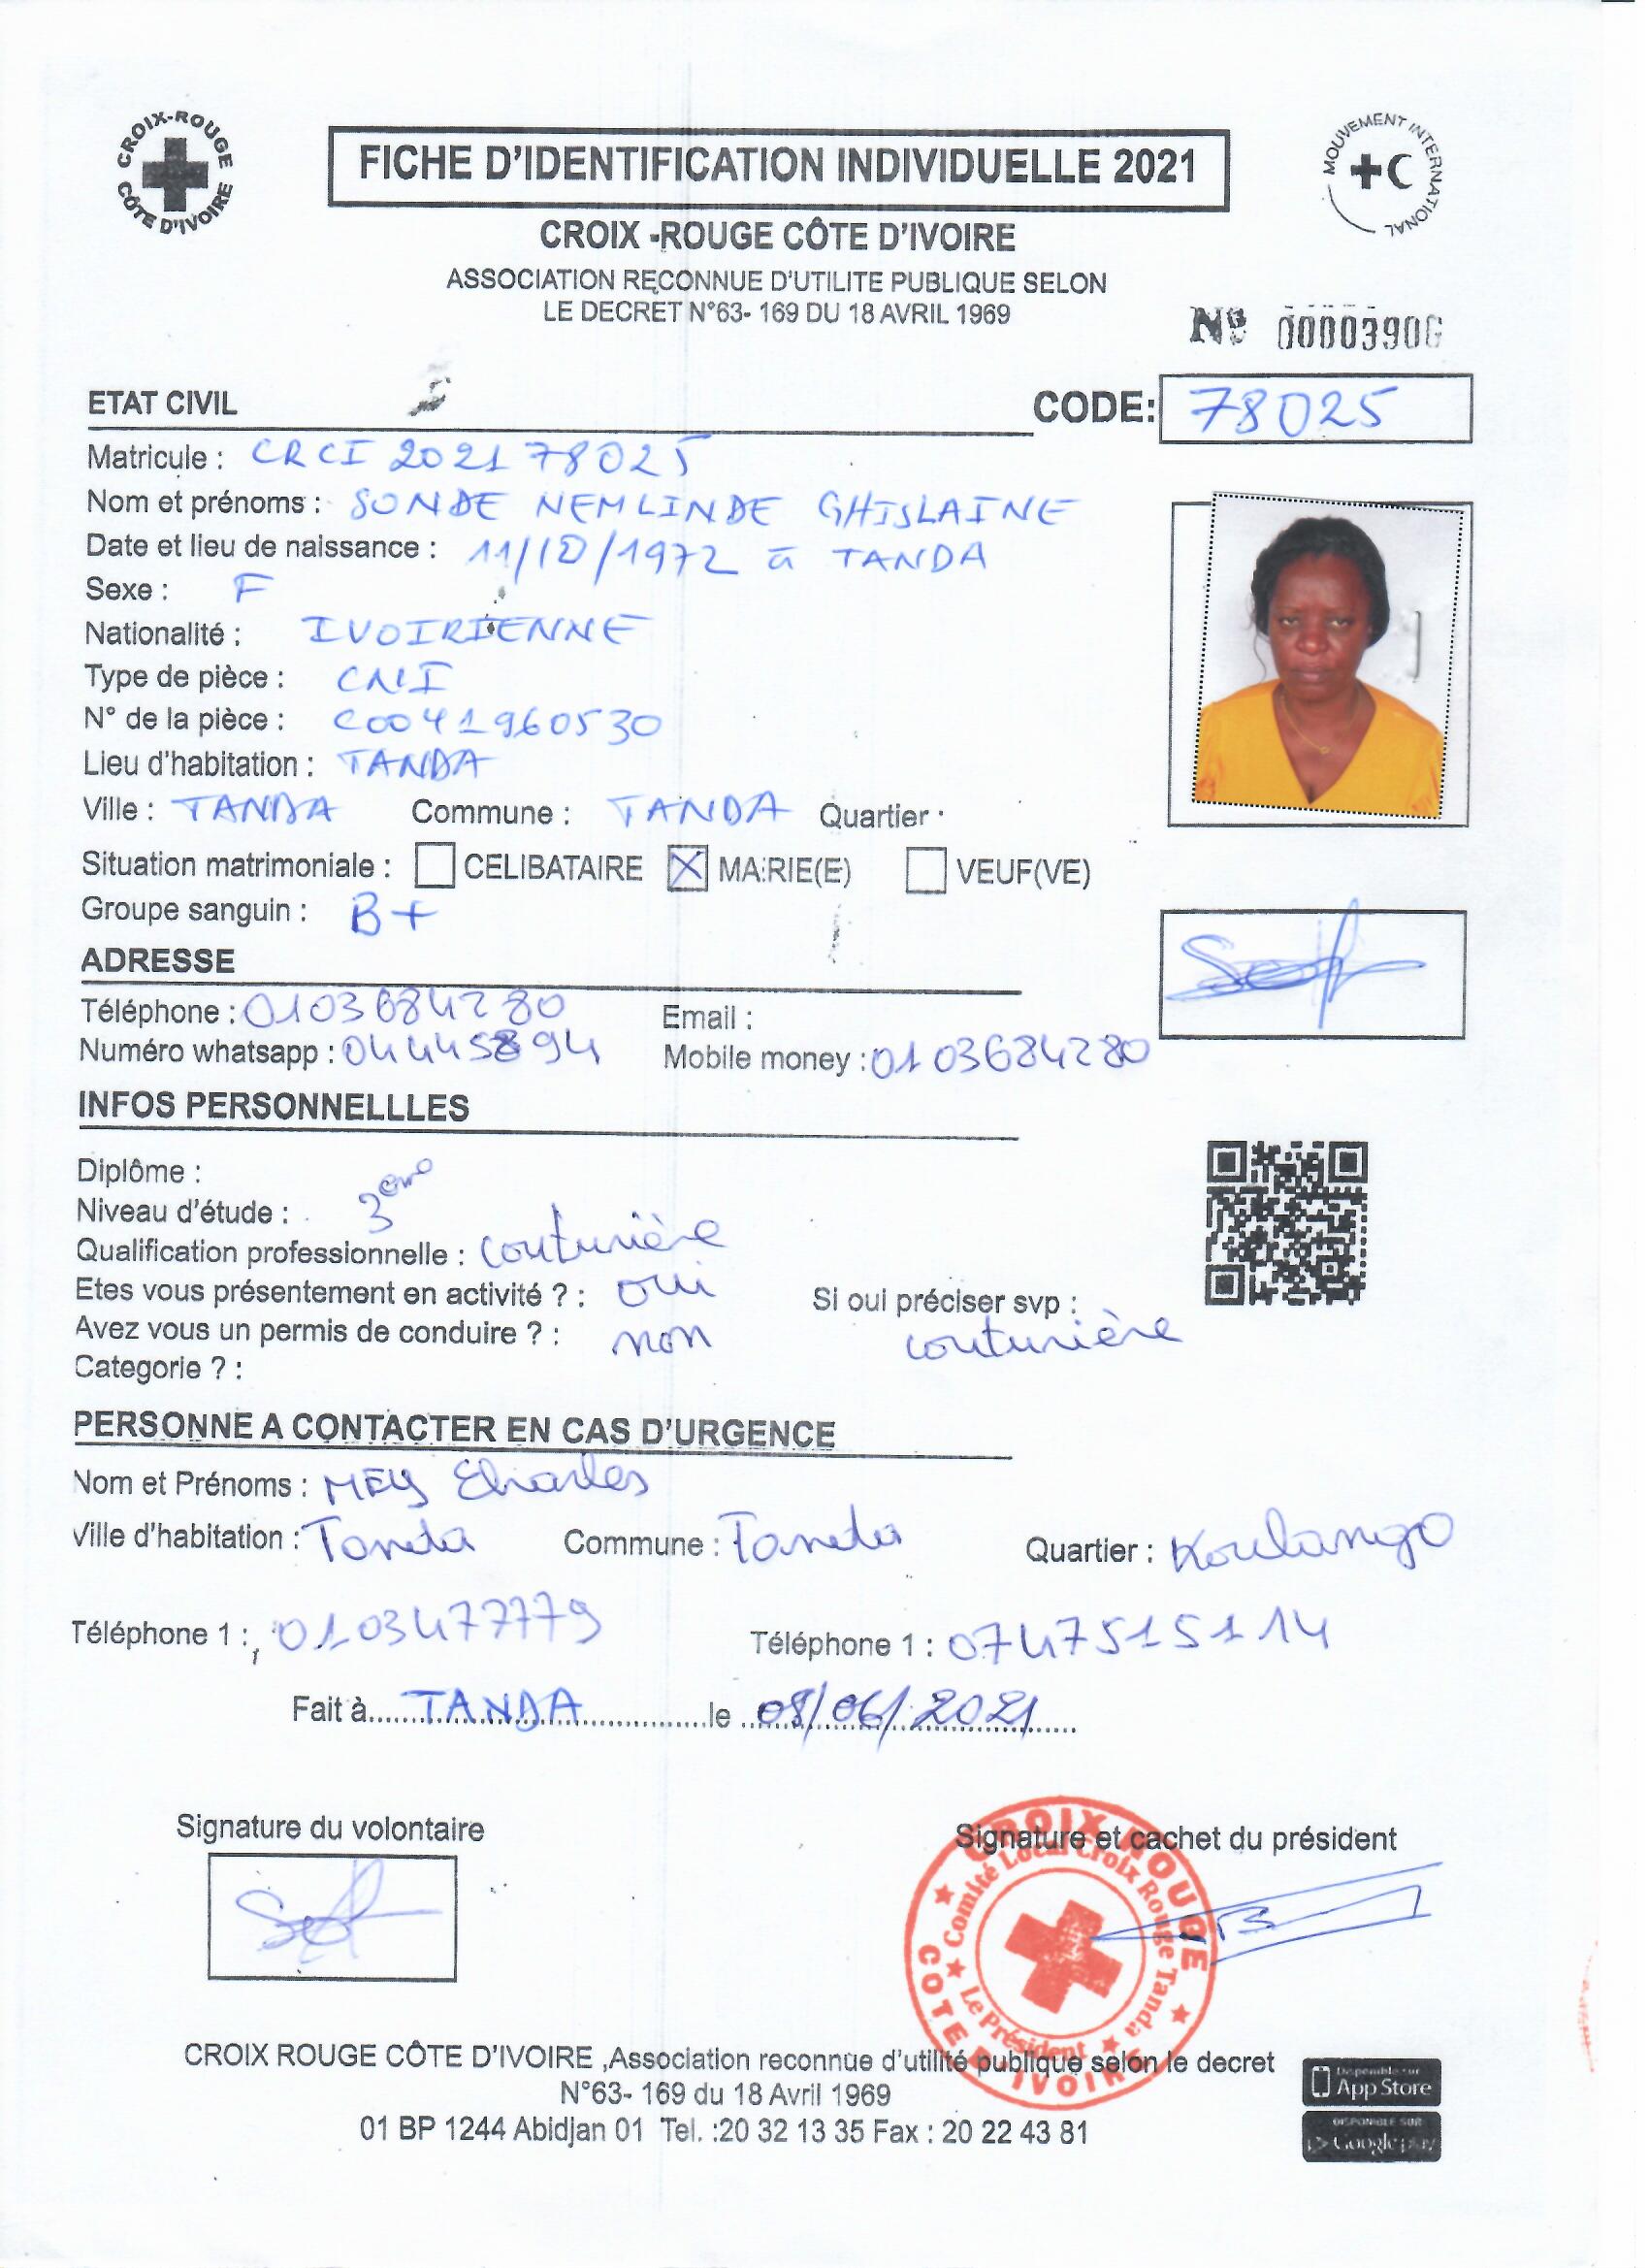 CROIX-ROUGE
CÔTE D'IVOIRE
FICHE D'IDENTIFICATION INDIVIDUELLE 2021
MOUVEMENT INTERNATIONAL
CROIX -ROUGE CÔTE D'IVOIRE
ASSOCIATION RECONNUE D'UTILITE PUBLIQUE SELON
LE DECRET N°63- 169 DU 18 AVRIL 1969
ETAT CIVIL
CODE: 78025
Matricule : CRCI 2021 78025
Nom et prénoms : SONDE NEMLINDE GHISLAINE
Date et lieu de naissance : 11/10/1972 à TANDA
Sexe : F
Nationalité : IVOIRIENNE
Type de pièce : CNI
N° de la pièce : C0041960530
Lieu d'habitation : TANDA
Ville : TANDA Commune : TANDA Quartier :
Situation matrimoniale : CELIBATAIRE MARIE(E) VEUF(VE)
Groupe sanguin : B+
ADRESSE
Téléphone : 0103684280 Email :
Numéro whatsapp : 04445894 Mobile money : 0103684280
INFOS PERSONNELLLES
Diplôme :
Niveau d'étude : 3eme
Qualification professionnelle : couturière
Etes vous présentement en activité ? : oui Si oui préciser svp :
couturière
Avez vous un permis de conduire ? : non
Categorie ? :
PERSONNE A CONTACTER EN CAS D'URGENCE
Nom et Prénoms : Charles
Ville d'habitation : Tanda Commune : Tanda Quartier : Koulango
Téléphone 1 : 0103477779 Téléphone 1 : 0747515114
Fait à TANDA le 08/06/2021
Signature du volontaire
Signature et cachet du président
CROIX ROUGE
COTE D'IVOIRE
Comité Local Croix Rouge Tanda
Le Président
CROIX ROUGE CÔTE D'IVOIRE ,Association reconnue d'utilité publique selon le decret
N°63- 169 du 18 Avril 1969
01 BP 1244 Abidjan 01 Tel. :20 32 13 35 Fax : 20 22 43 81
Disponible sur
App Store
DISPONIBLE SUR
Google play